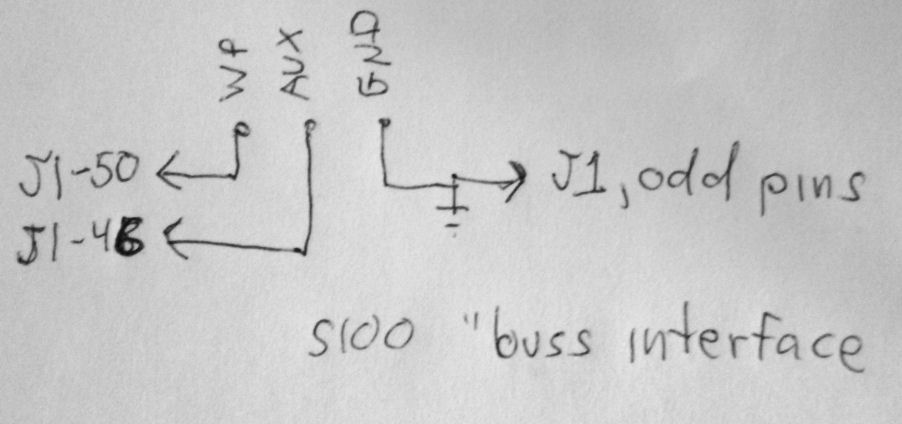 WP AUX GND
J1-50
J1, odd pins
J1-46
S100 "buss interface